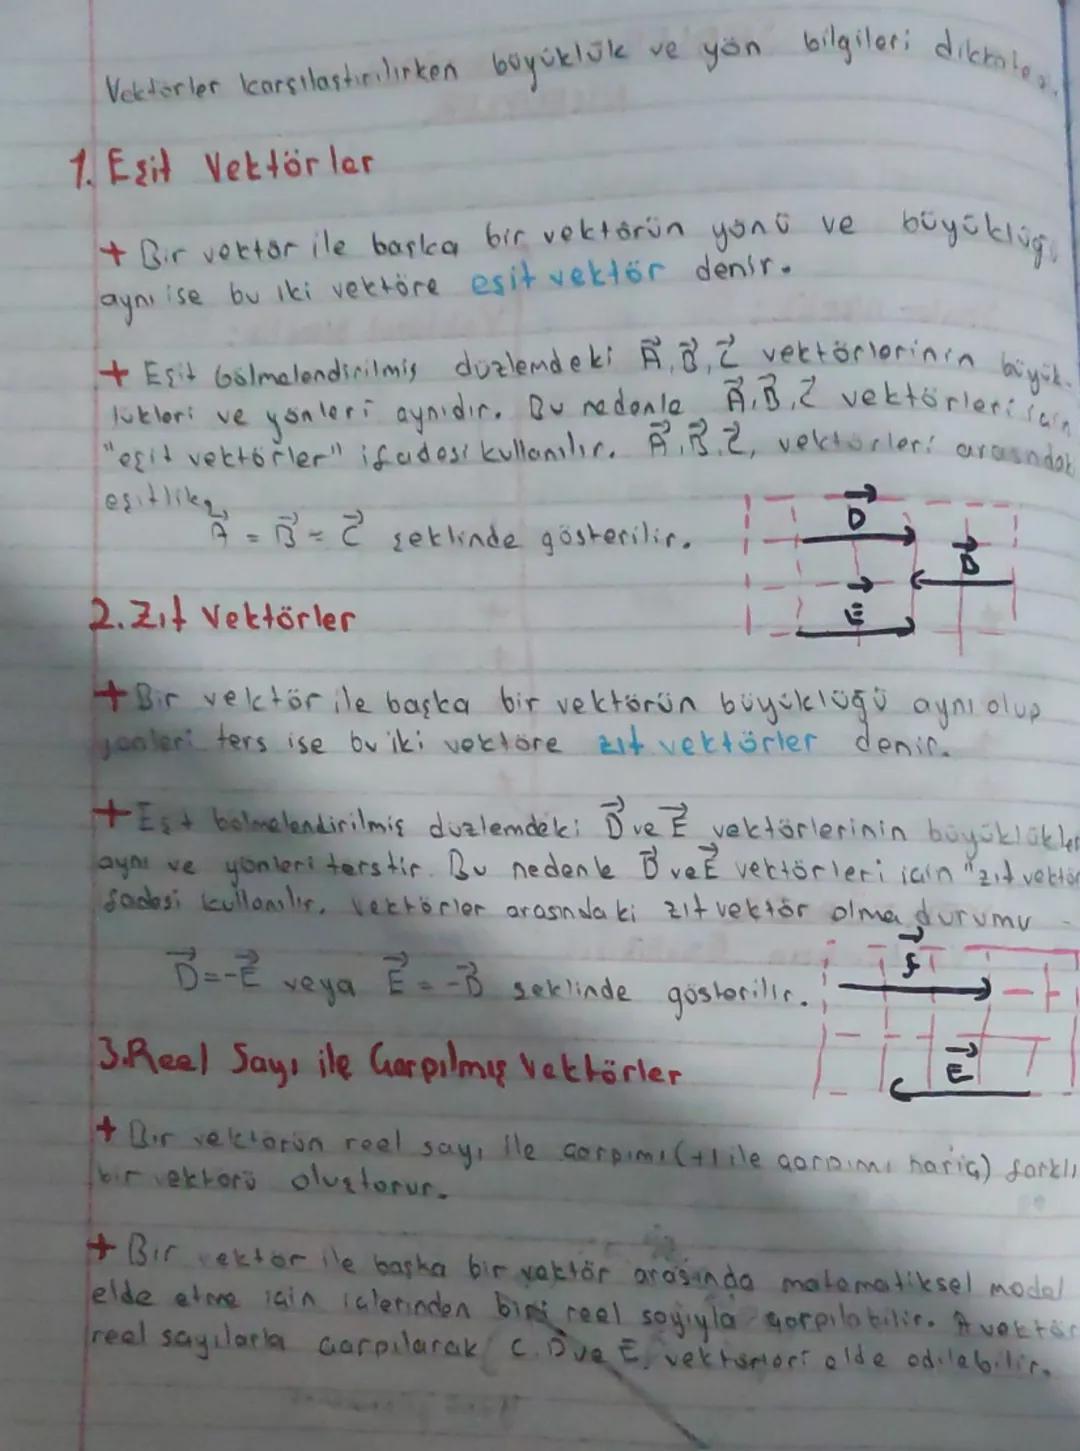 Vektörler karşılaştırılırken büyüklük ve yön bilgileri dikkate
1. Eşit Vektörler
+ Bir vektör ile başka bir vektörün yönü ve büyüklüğü
aynı ise bu iki vektöre eşit vektör denir.
+ Eşit bölmelendirilmiş düzlemdeki A, B, C vektörlerinin büyük-
lükleri ve yönleri aynıdır. Bu nedenle A, B, C vektörleri için
"eşit vektörler" ifadesi kullanılır. A, B, C, vektörleri arasındaki
eşitlik,
A = B = C şeklinde gösterilir.
D
D
E
2. Zıt Vektörler
+ Bir vektör ile başka bir vektörün büyüklüğü aynı olup
yönleri ters ise bu iki vektöre zıt vektörler denir.
+ Eşit bölmelendirilmiş düzlemdeki D ve E vektörlerinin büyüklükler
aynı ve yönleri terstir. Bu nedenle D ve E vektörleri için "zıt vektör
fadesi kullanılır. Vektörler arasındaki zıt vektör olma durumu
D=-E veya E=-D şeklinde gösterilir.
f
E
3. Reel Sayı ile Çarpılmış Vektörler
+ Bir vektörün reel sayı ile çarpımı (+1 ile çarpımı hariç) farklı
bir vektörü oluşturur.
+ Bir vektör ile başka bir vektör arasında matematiksel model
elde etme için içlerinden biri reel sayıyla çarpılabilir. A vektör
reel sayılarla çarpılarak C, D ve E, vektörleri elde edilebilir.